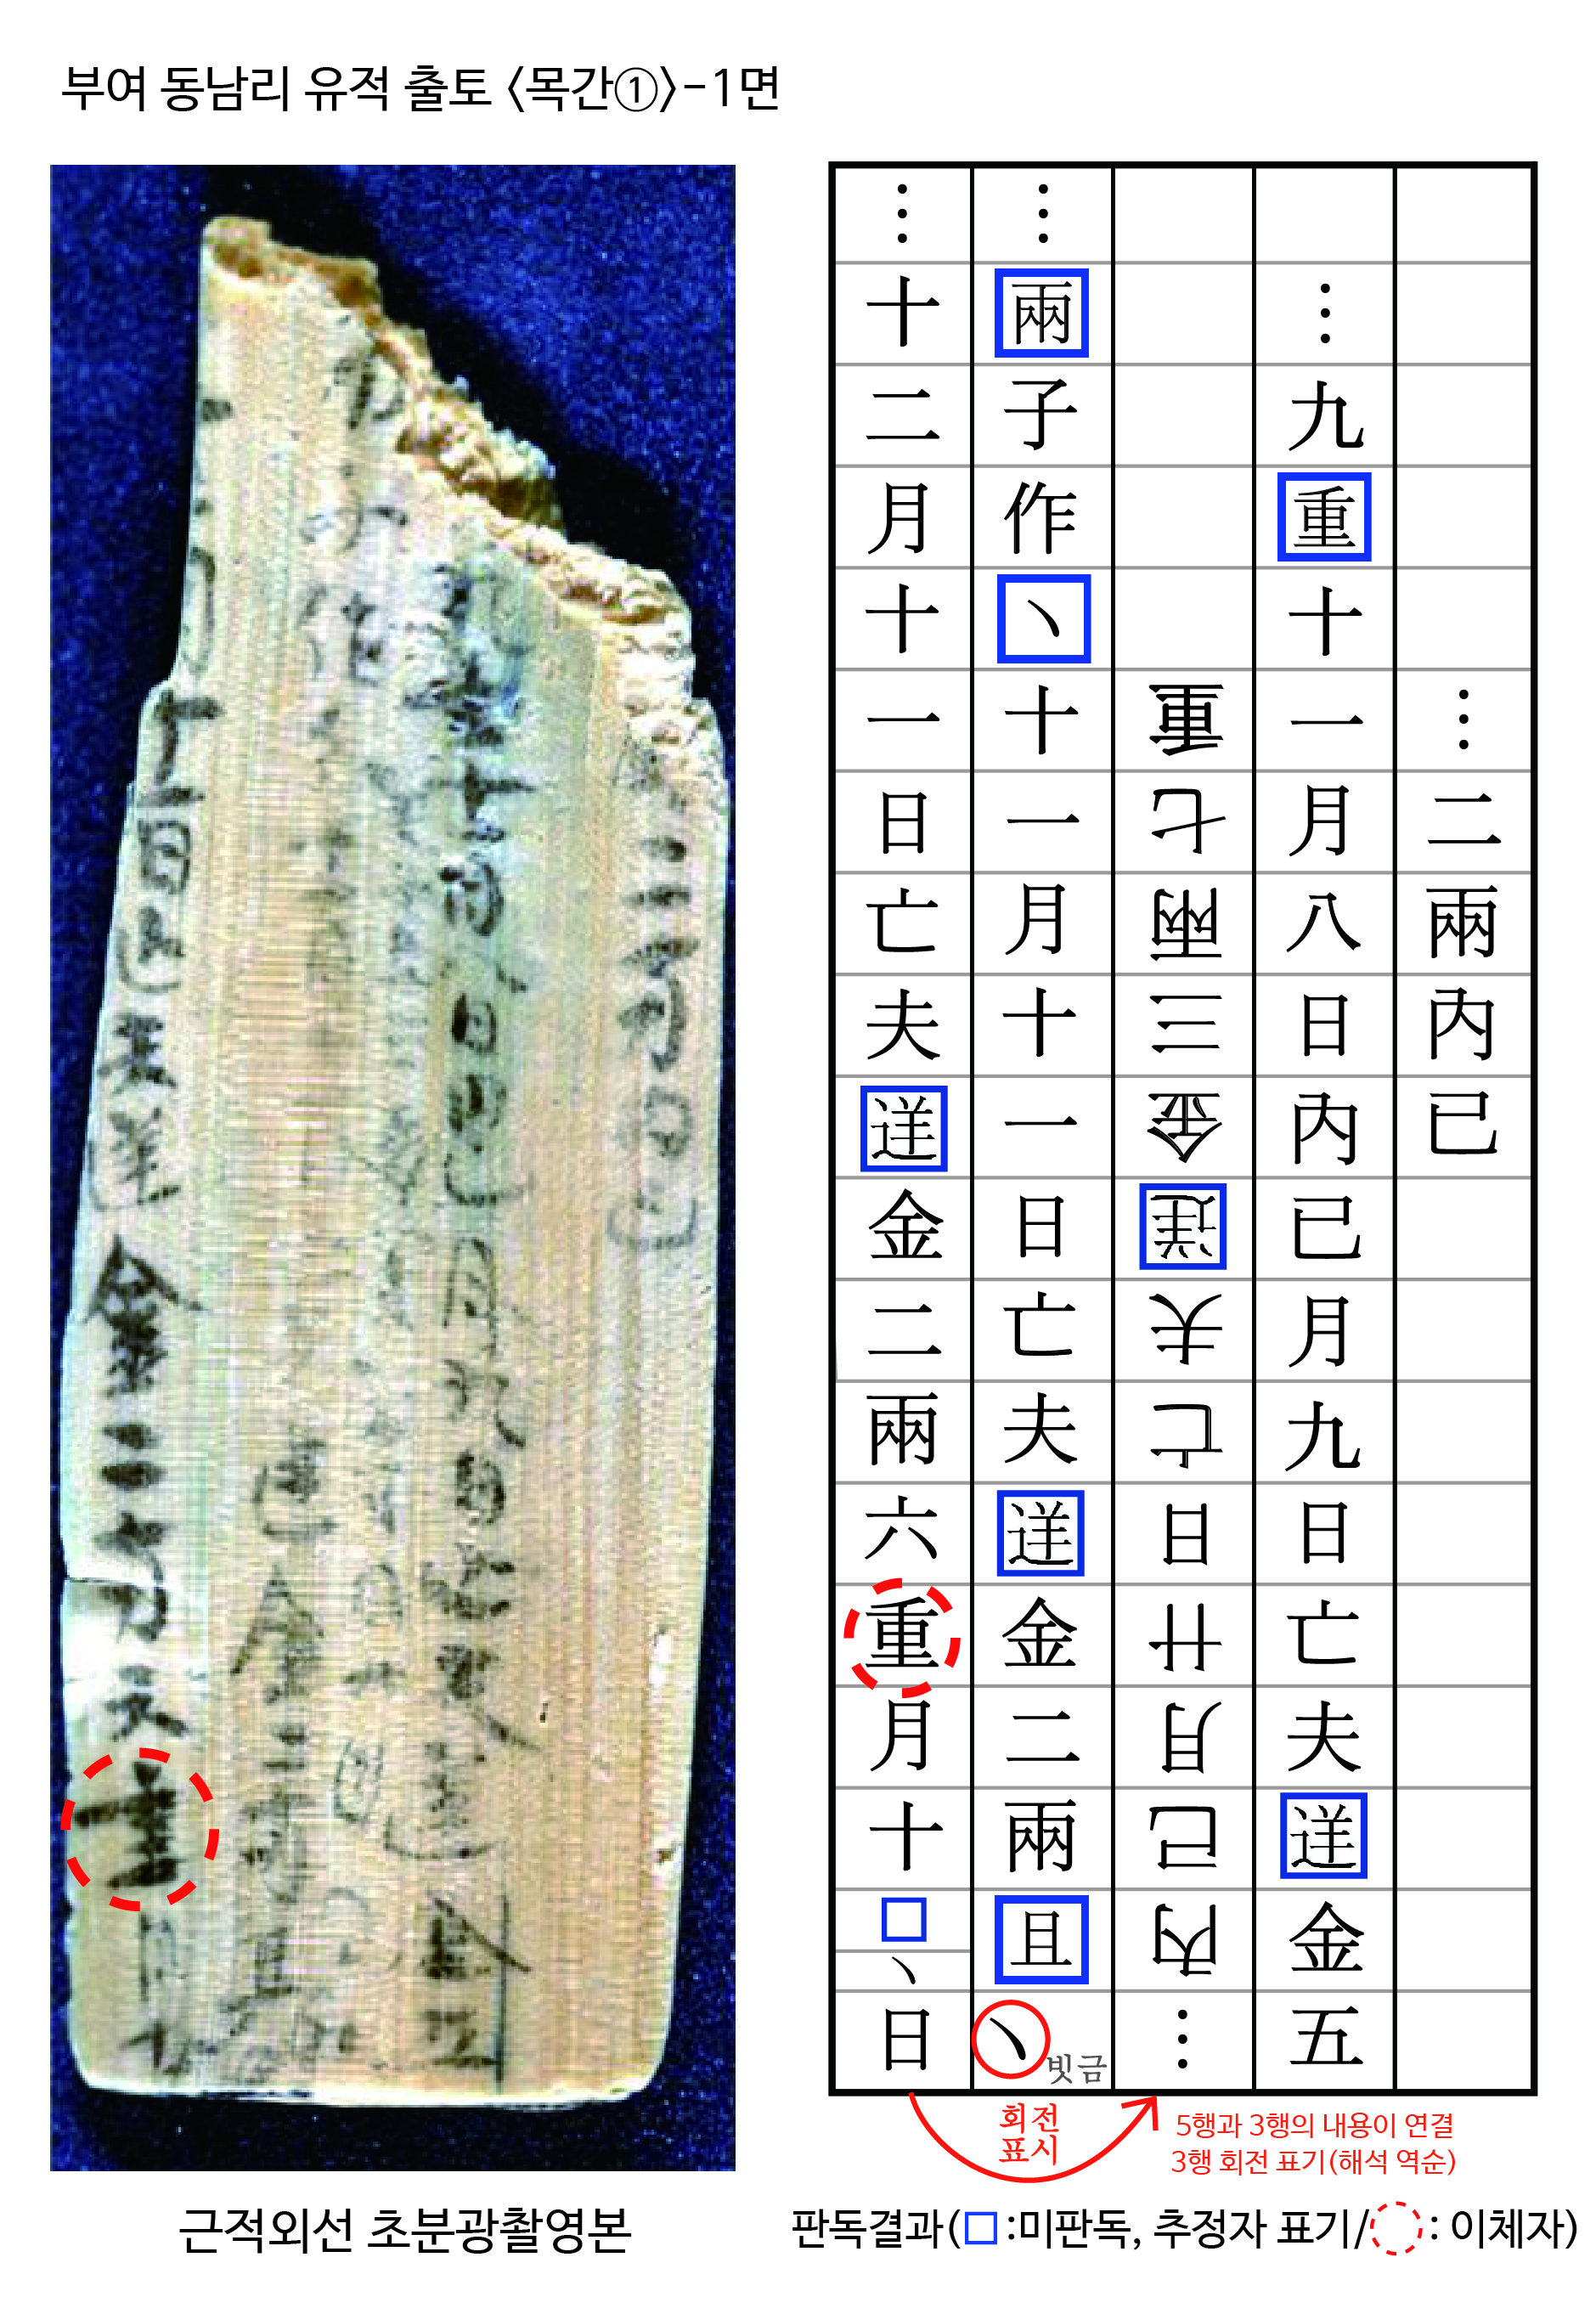 부여 동남리 유적 출토 〈목간①〉-1면
⋮二兩內已
⋮九重十一月八日內已月九日亡夫金五
⋮內已月廿日亡夫金三兩七重
⋮兩子作丶十一月十一日亡夫金二兩且丶
빗금
⋮十二月十一日亡夫金二兩六重月十□丶日
회전
표시
5행과 3행의 내용이 연결
3행 회전 표기(해석 역순)
근적외선 초분광촬영본
판독결과(□:미판독, 추정자 표기/◌: 이체자)